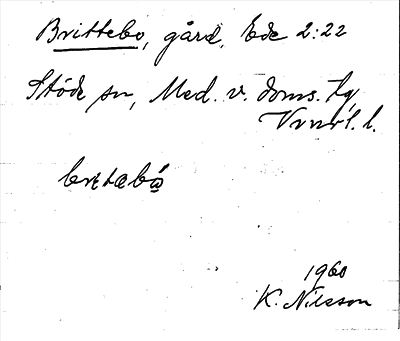 Brittebo, gård, Ede 2:22
Stöde sn, Med. v. doms. tg,
Vnorl. l.
1960
K. Nilsson